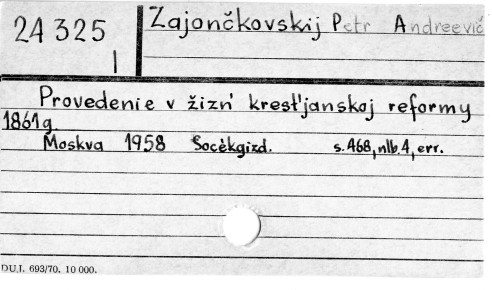 24 325
I
Zajončkovskij Petr Andreevič
Provedenie v žizń krest'janskoj reformy
1861g.
Moskva 1958 Socėkgizd. s.468, nlb.4, err.
DUJ. 693/70. 10 000.